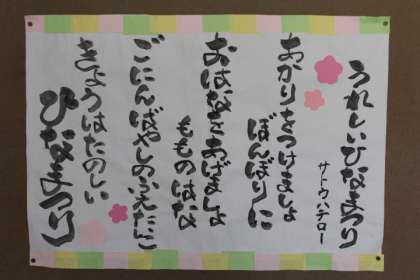 うれしいひなまつり
サトウハチロー
あかりをつけましょ
ぼんぼりに
おはなをあげましょ
もものはな
ごにんばやしのふえたいこ
きょうはたのしい
ひなまつり